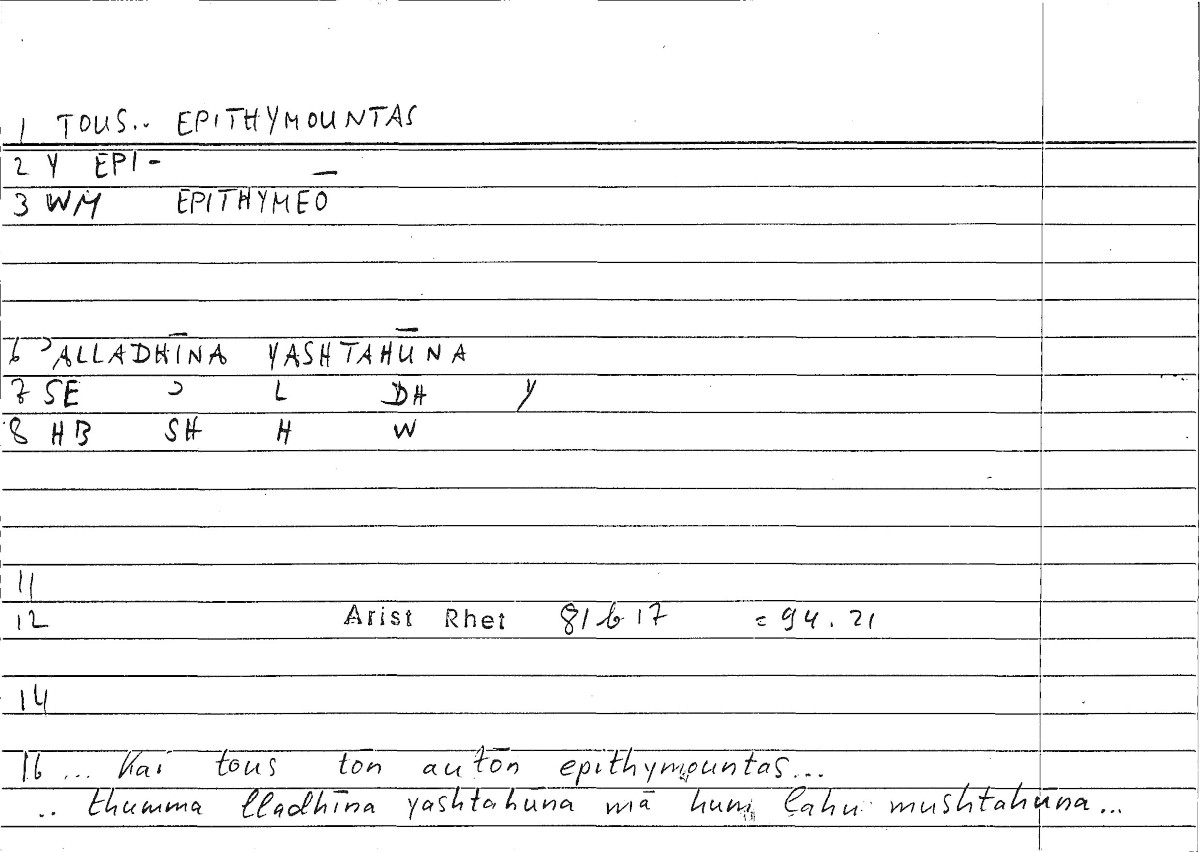 1 TOUS.. EPITHYMOUNTAS
2 Y EPI-
3 WM EPITHYMEŌ
6 ʾALLADHĪNA YASHTAHŪNA
7 SE ʾ L DH Y
8 HB SH H W
11
12 Arist Rhet 81b17 = 94.21
14
16 ... kai tous tōn autōn epithymountas...
.. thumma lladhīna yashtahūna mā hum lahu mushtahūna...